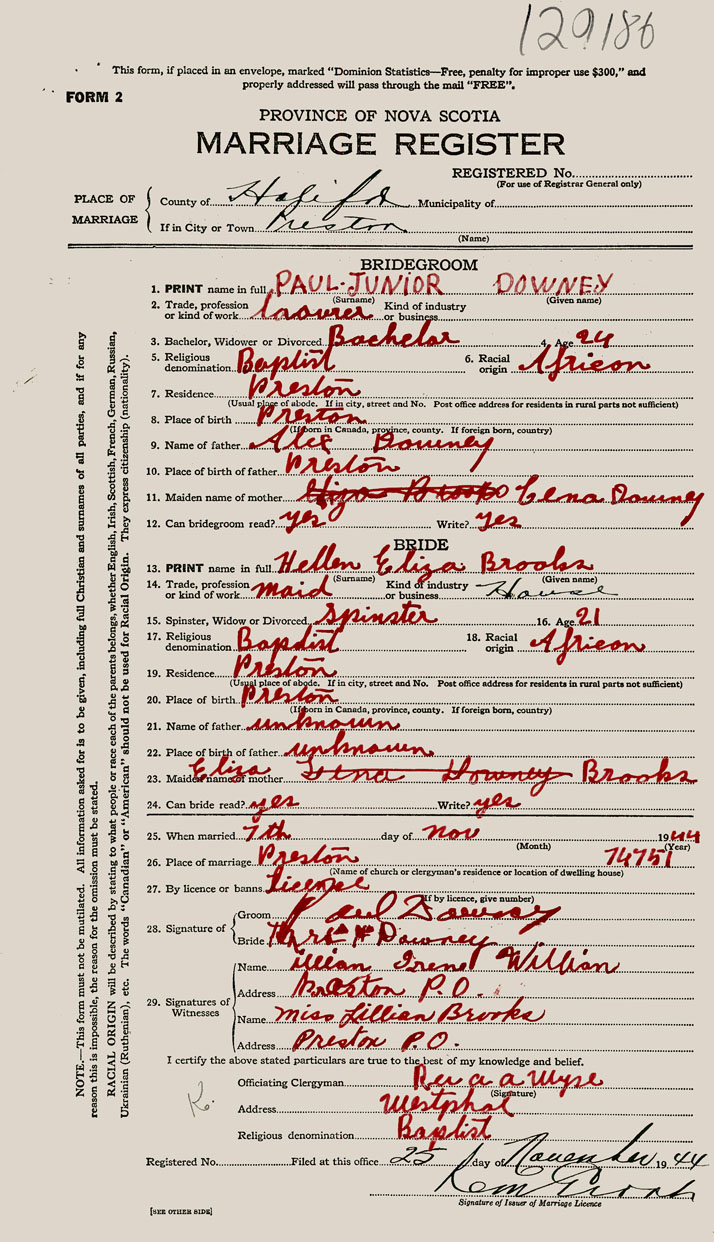 129186
This form, if placed in an envelope, marked "Dominion Statistics—Free, penalty for improper use $300," and
properly addressed will pass through the mail "FREE".
FORM 2
PROVINCE OF NOVA SCOTIA
MARRIAGE REGISTER
REGISTERED No.
(For use of Registrar General only)
PLACE OF MARRIAGE
County of Halifax Municipality of
If in City or Town Preston
(Name)
BRIDEGROOM
1. PRINT name in full PAUL-JUNIOR DOWNEY
(Surname) (Given name)
2. Trade, profession or kind of work Labourer Kind of industry or business
3. Bachelor, Widower or Divorced Bachelor 4. Age 24
5. Religious denomination Baptist 6. Racial origin African
7. Residence Preston
(Usual place of abode. If in city, street and No. Post office address for residents in rural parts not sufficient)
8. Place of birth Preston
(If born in Canada, province, county. If foreign born, country)
9. Name of father Alex Downey
10. Place of birth of father Preston
11. Maiden name of mother Eliza Brooks Lena Downey
12. Can bridegroom read? yes Write? yes
BRIDE
13. PRINT name in full Hellen Eliza Brooks
(Surname) (Given name)
14. Trade, profession or kind of work maid Kind of industry or business House
15. Spinster, Widow or Divorced Spinster 16. Age 21
17. Religious denomination Baptist 18. Racial origin African
19. Residence Preston
(Usual place of abode. If in city, street and No. Post office address for residents in rural parts not sufficient)
20. Place of birth Preston
(If born in Canada, province, county. If foreign born, country)
21. Name of father unknown
22. Place of birth of father unknown
23. Maiden name of mother Eliza Lena Downey Brooks
24. Can bride read? yes Write? yes
25. When married 7th day of Nov 1944
(Month) (Year)
26. Place of marriage Preston 74751
(Name of church or clergyman's residence or location of dwelling house)
27. By licence or banns License
(If by licence, give number)
28. Signature of
Groom Paul Downey
Bride Mrs H Downey
29. Signatures of Witnesses
Name illian Irene Willian
Address Preston P.O.
Name Miss Lillian Brooks
Address Preston P.O.
I certify the above stated particulars are true to the best of my knowledge and belief.
Officiating Clergyman Rev a a Wyse
(Signature)
Address Westphal
Religious denomination Baptist
K.
Registered No. Filed at this office 25 day of November 1944
Signature of Issuer of Marriage Licence
[SEE OTHER SIDE]
NOTE.—This form must not be mutilated. All information asked for is to be given, including full Christian and surnames of all parties, and if for any
reason this is impossible, the reason for the omission must be stated.
RACIAL ORIGIN will be described by stating to what people or race each of the parents belongs, whether English, Irish, Scottish, French, German, Russian,
Ukrainian (Ruthenian), etc. The words "Canadian" or "American" should not be used for Racial Origin. They express citizenship (nationality).